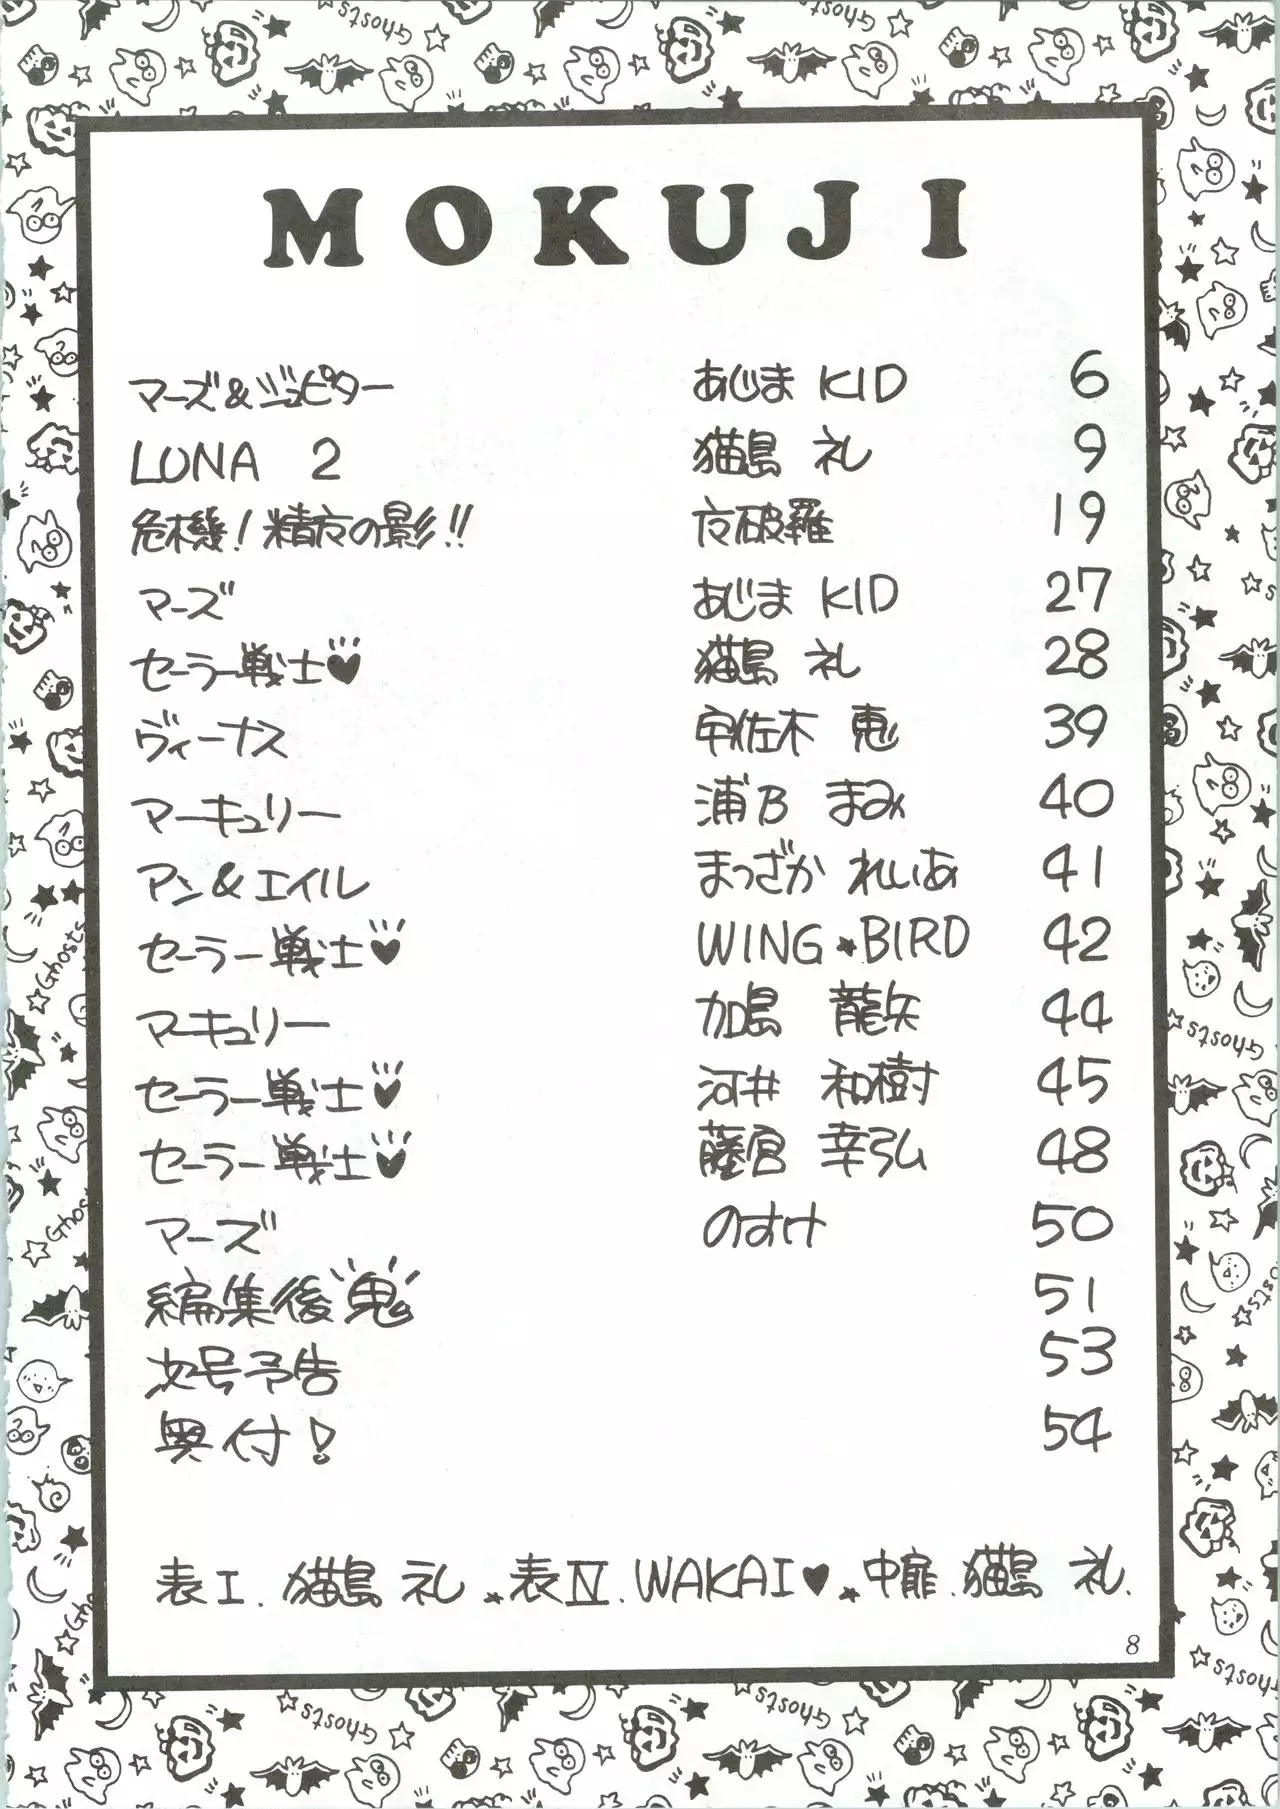 MOKUJI
マーズ&ジュピター あじま KID 6
LUNA 2 猫島 礼 9
危機!精方の影!! 夜破羅 19
マーズ あじま KID 27
セーラー戦士♥ 猫島 礼 28
ヴィーナス 宇佐木 恵 39
マーキュリー 浦乃 まみ 40
アン&エイル まつざか れいあ 41
セーラー戦士♥ WING★BIRD 42
マーキュリー 加島 龍矢 44
セーラー戦士♥ 河井 和樹 45
セーラー戦士♥ 藤宮 幸弘 48
マーズ のすけ 50
編集後鬼。 51
次号予告 53
奥付! 54
表I.猫島 礼★表IV.WAKAI♥★中扉.猫島 礼.
8
Ghosts
Ghosts
Ghosts
Ghosts
Ghosts
Ghosts
Ghosts
Ghosts